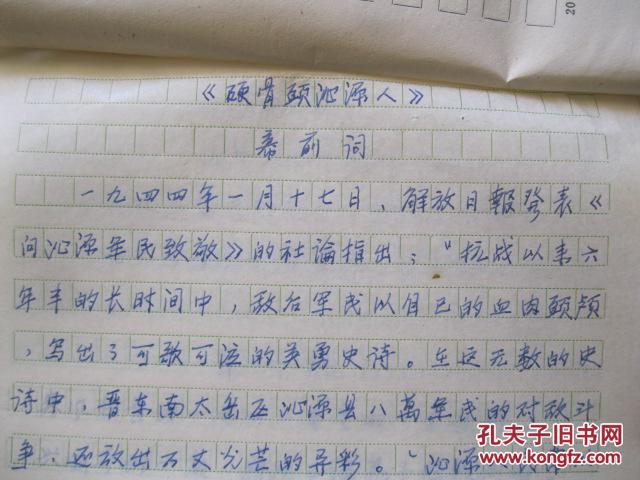 《硬骨头沁源人》
幕前词
一九四四年一月十七日，解放日報發表《
向沁源军民致敬》的社論指出："抗战以来六
年半的长时间中，敌后军民以自己的血肉头颅
，写出了可歌可泣的英勇史诗。在这无数的史
诗中，晋东南太岳区沁源县八萬军民的对敌斗
争，还放出万丈光芒的异彩。"沁源
20
孔夫子旧书网
www.kongfz.com